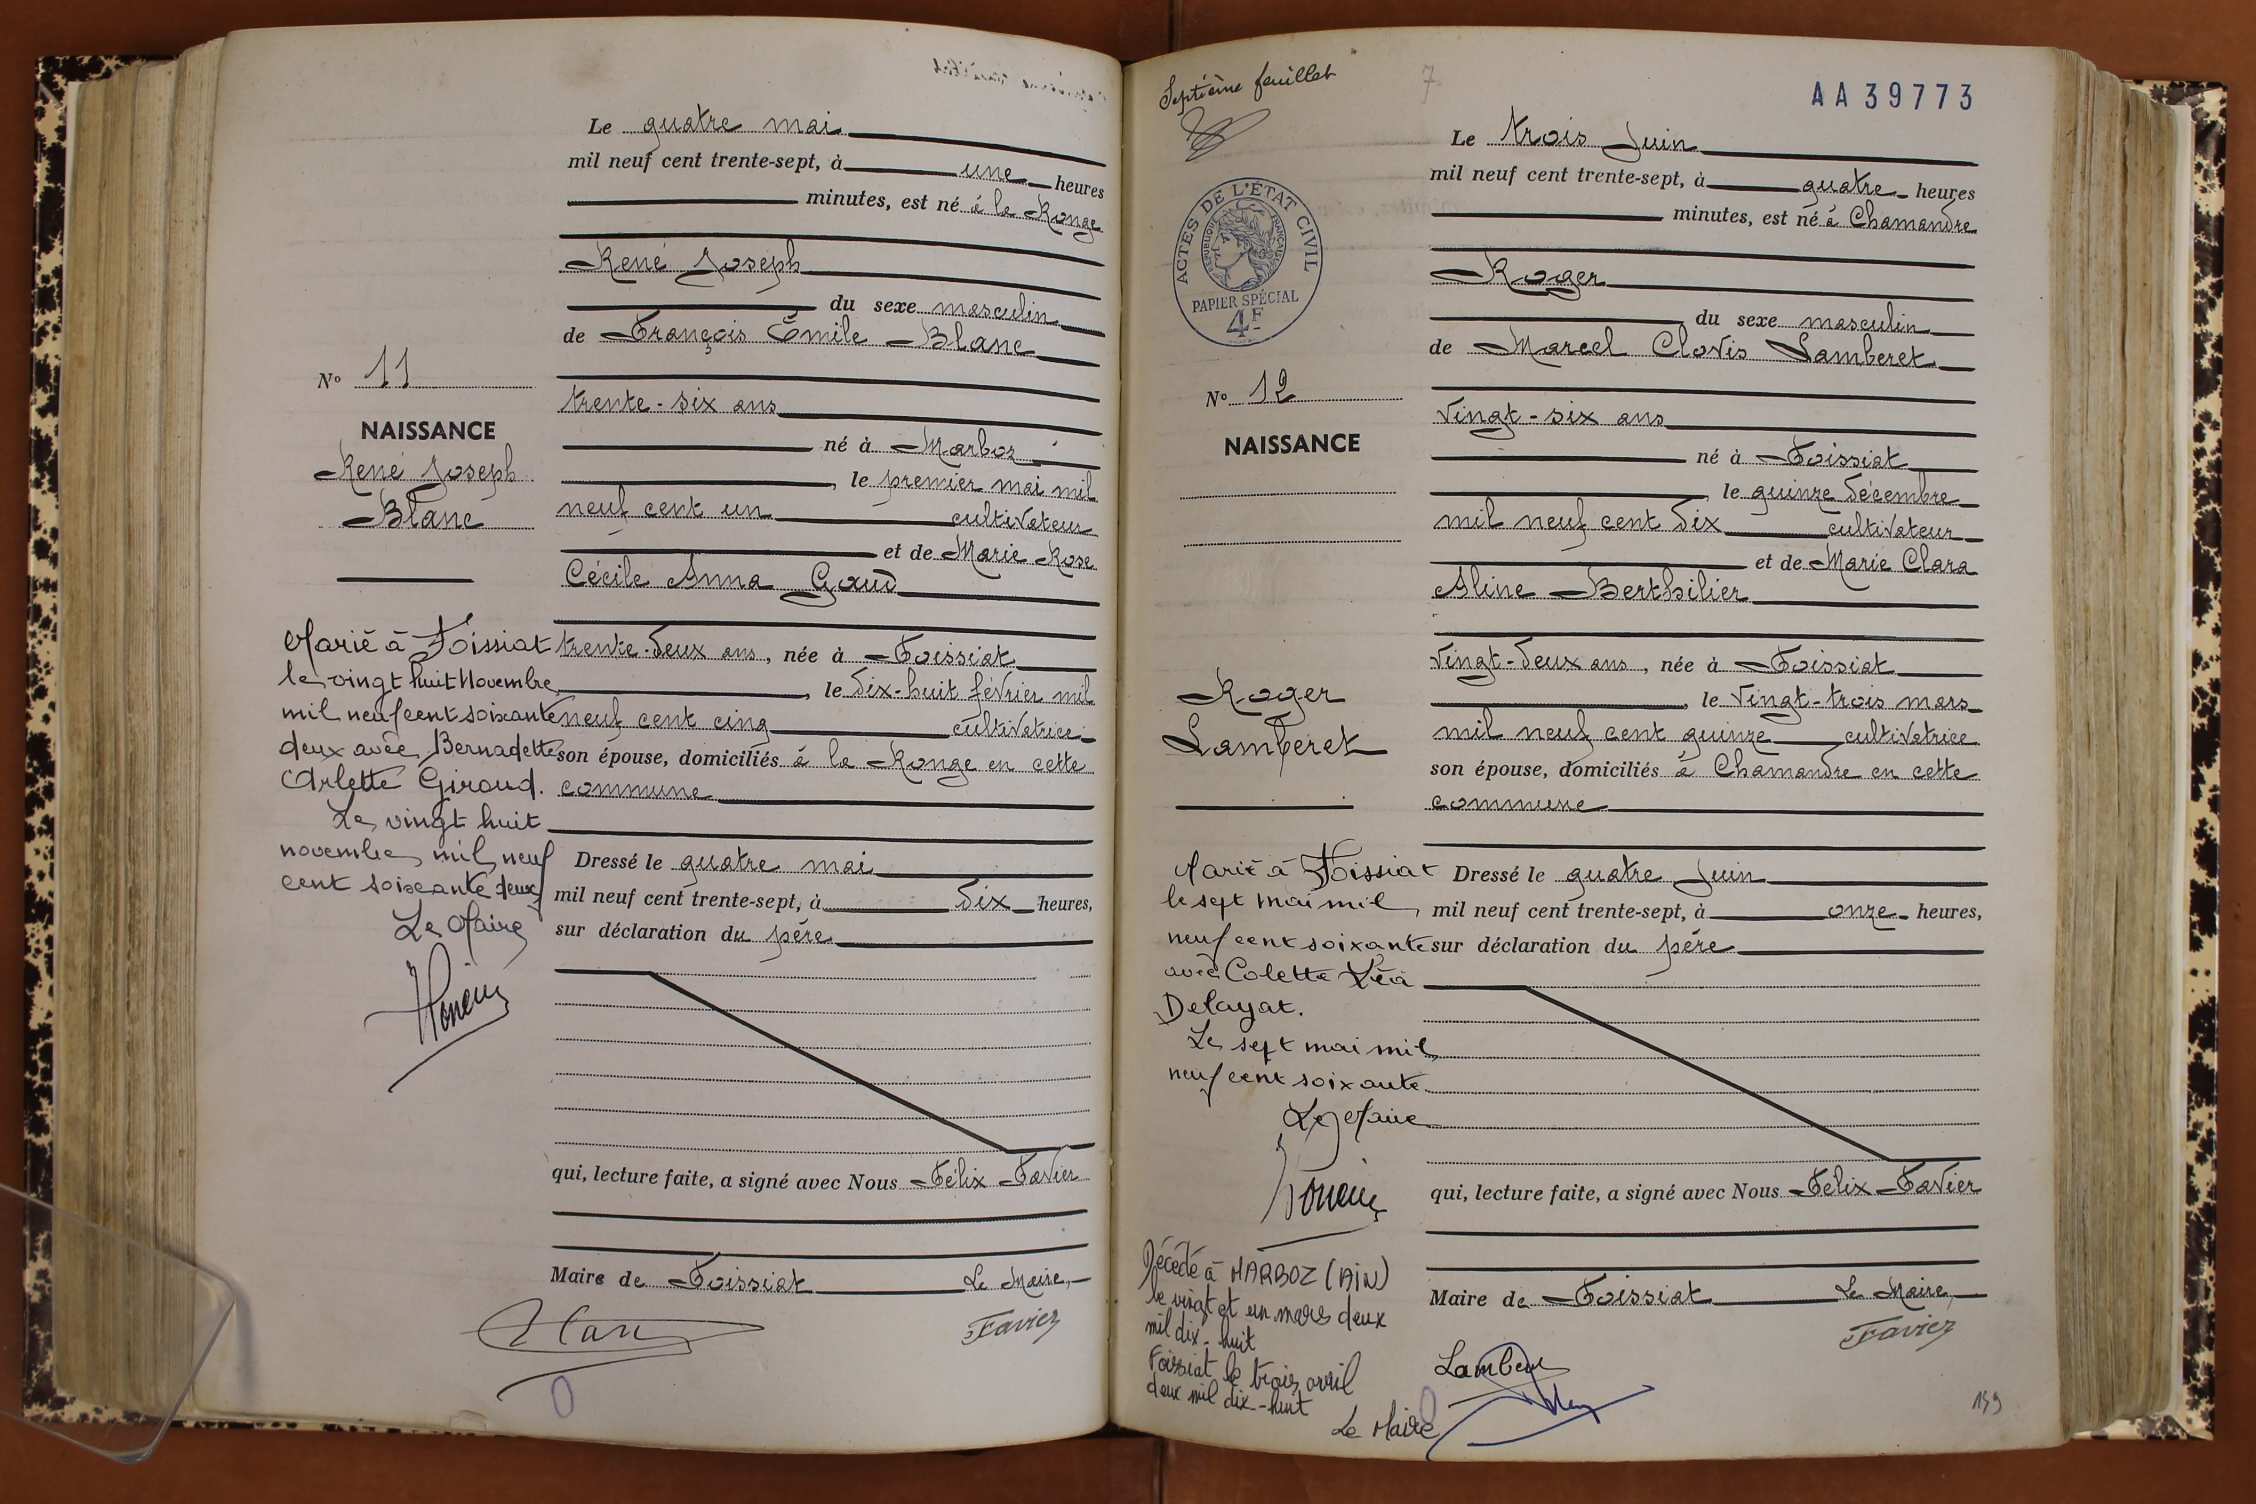 Le quatre mai
mil neuf cent trente-sept, à une heures
minutes, est né à la Ronge
René Joseph
du sexe masculin
de François Émile Blanc
trente-six ans
né à Marboz
, le premier mai mil
neuf cent un cultivateur
et de Marie Rose
Cécile Anna Goud
trente-deux ans, née à Foissiat
, le dix-huit février mil
neuf cent cinq cultivatrice
son épouse, domiciliés à la Ronge en cette
commune
Dressé le quatre mai
mil neuf cent trente-sept, à dix heures,
sur déclaration du père
qui, lecture faite, a signé avec Nous Félix Favier
Maire de Foissiat Le Maire,
Favier
No 11
NAISSANCE
René Joseph
Blanc
Marié à Foissiat
le vingt huit Novembre
mil neuf cent soixante
deux avec Bernadette
Arlette Giroud.
Le vingt huit
novembre mil neuf
cent soixante deux
Le Maire
Septième feuillet
7
AA39773
ACTES DE L'ÉTAT CIVIL
RÉPUBLIQUE FRANÇAISE
PAPIER SPÉCIAL
4F
Le trois Juin
mil neuf cent trente-sept, à quatre heures
minutes, est né à Chamandre
Roger
du sexe masculin
de Marcel Clovis Lamberet
vingt-six ans
né à Foissiat
, le quinze décembre
mil neuf cent dix cultivateur
et de Marie Clara
Aline Berthilier
vingt-deux ans, née à Foissiat
, le vingt-trois mars
mil neuf cent quinze cultivatrice
son épouse, domiciliés à Chamandre en cette
commune
Dressé le quatre Juin
mil neuf cent trente-sept, à onze heures,
sur déclaration du père
qui, lecture faite, a signé avec Nous Félix Favier
Maire de Foissiat Le Maire,
Favier
Lamberet
No 12
NAISSANCE
Roger
Lamberet
Marié à Foissiat
le sept mai mil
neuf cent soixante
avec Colette Léa
Delayat.
Le sept mai mil
neuf cent soixante
Le Maire
Décédé à MARBOZ (AIN)
le vingt et un mars deux
mil dix-huit
Foissiat le trois avril
deux mil dix-huit
Le Maire
159